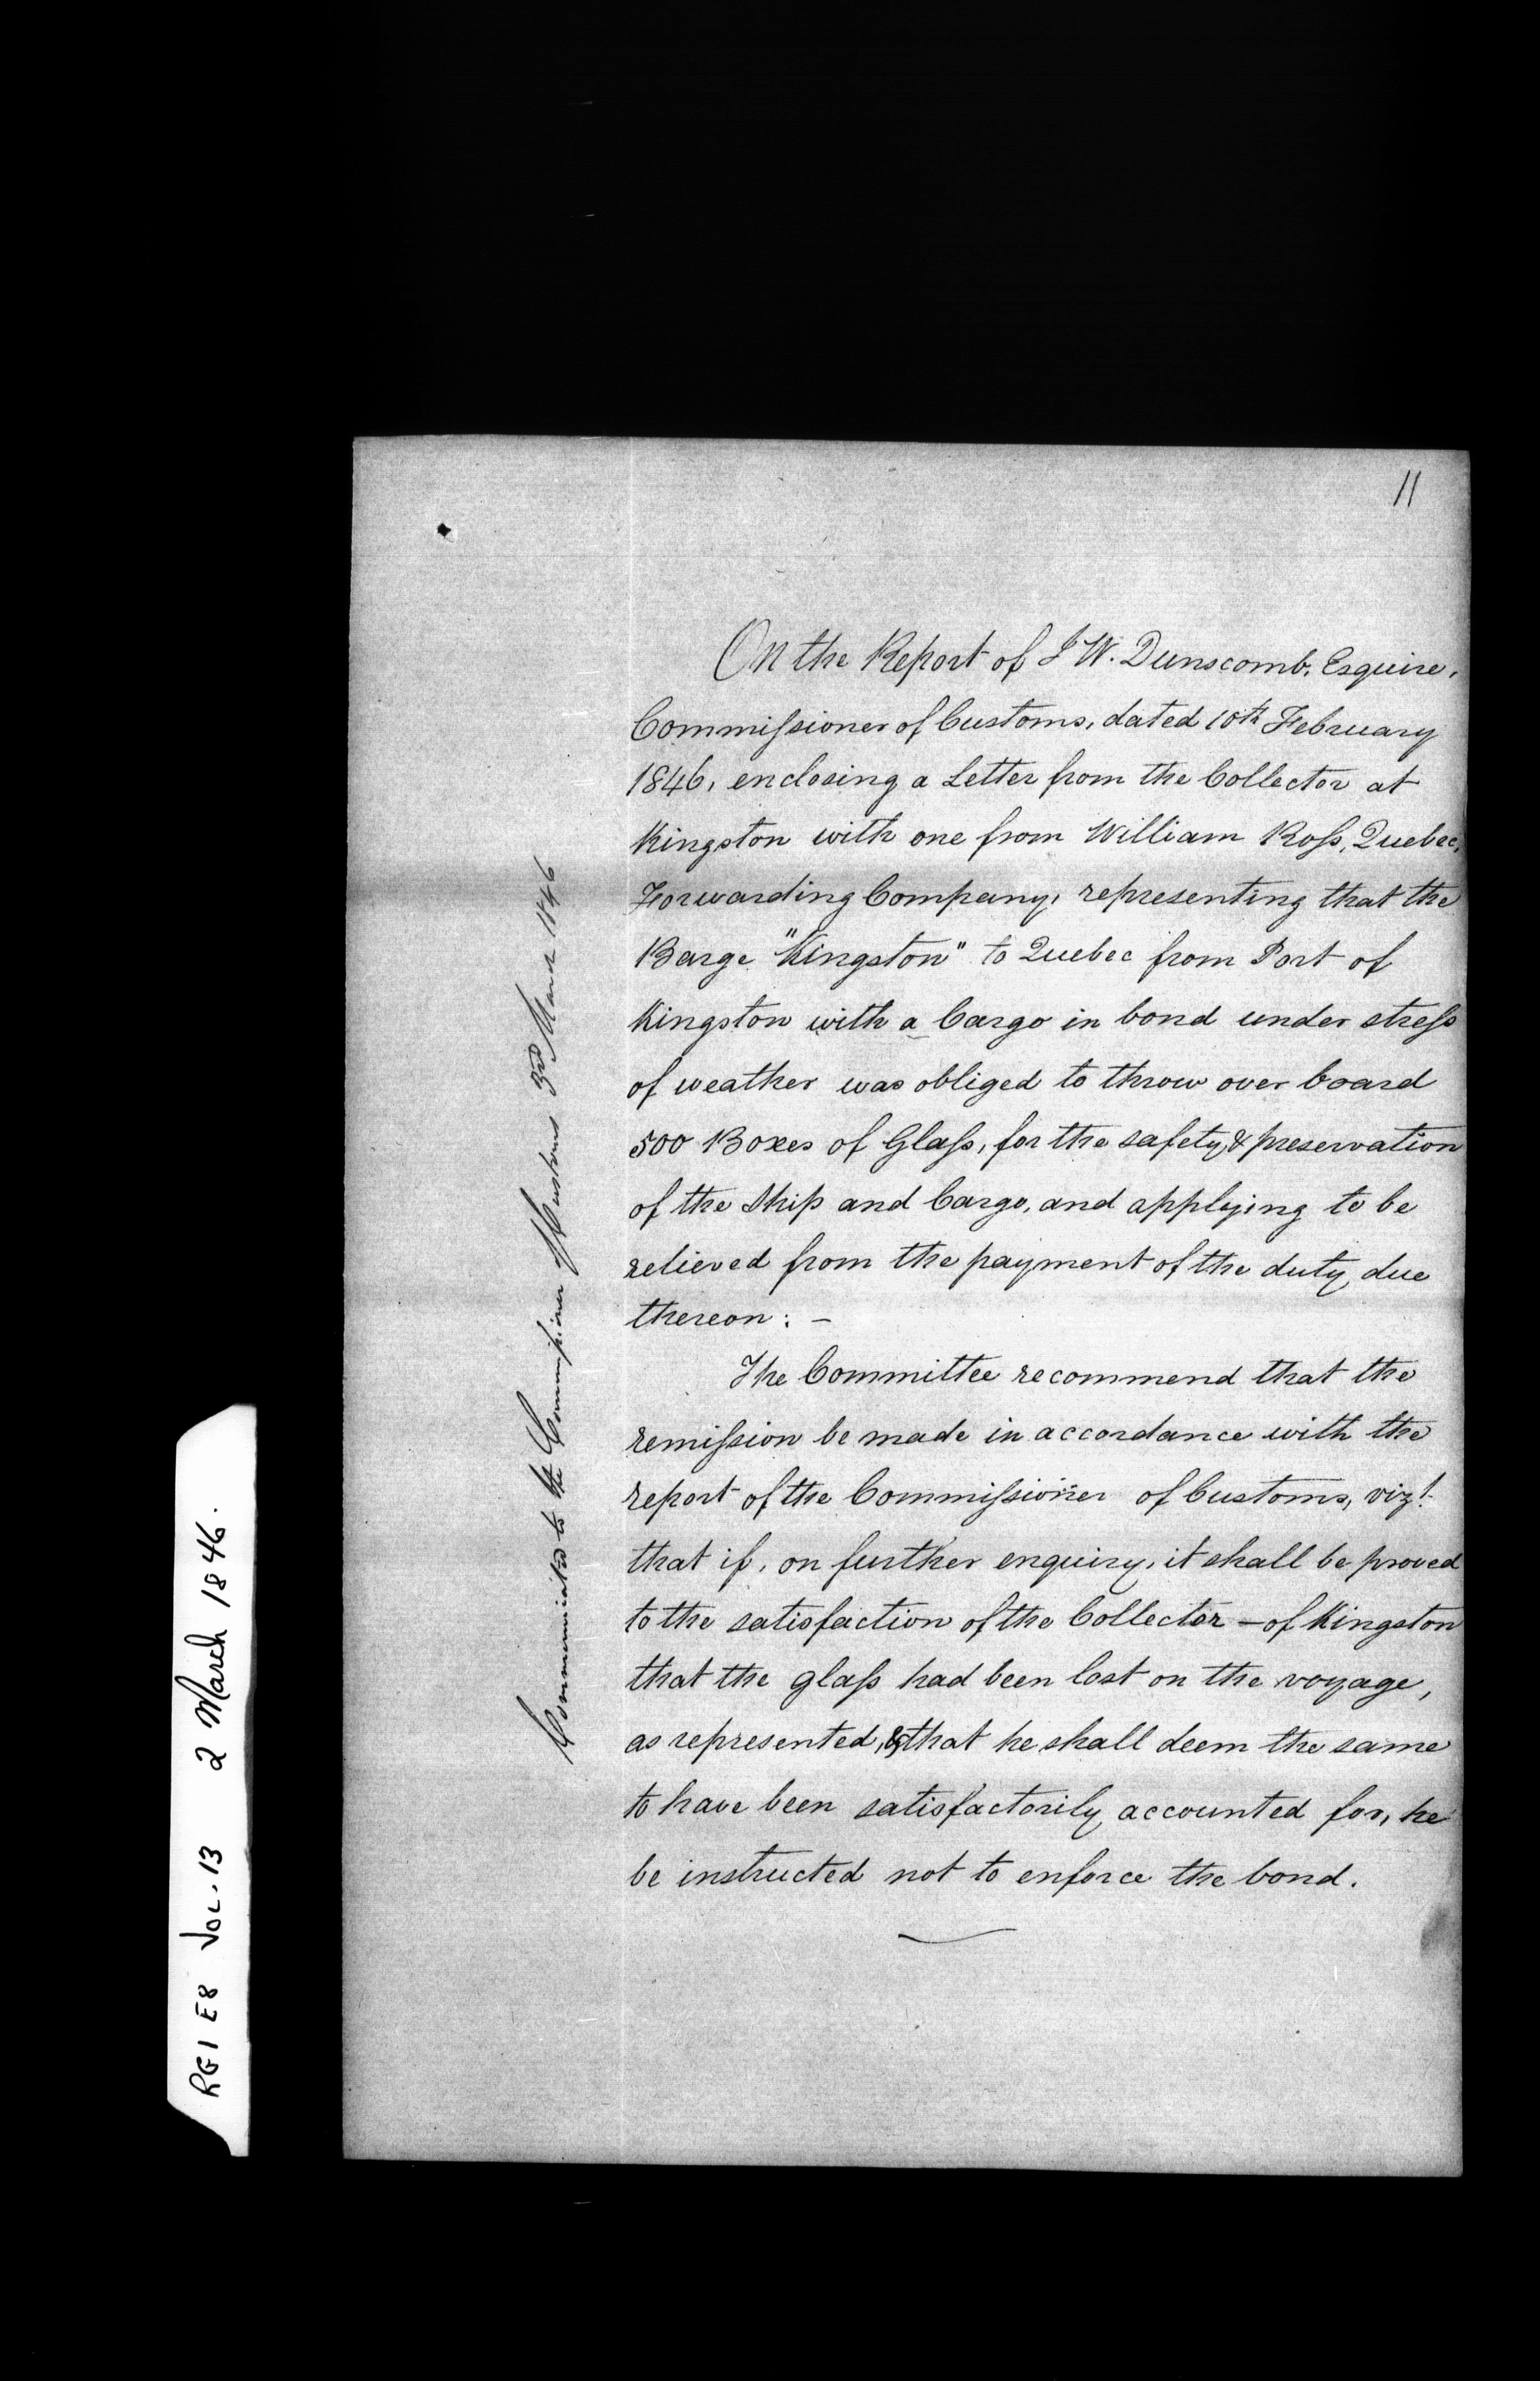 11
On the Report of J W. Dunscomb, Esquire,
Commissioner of Customs, dated 10th February
1846, enclosing a Letter from the Collector at
Kingston with one from William Ross, Quebec,
Forwarding Company, representing that the
Barge "Kingston" to Quebec from Port of
Kingston with a Cargo in bond under stress
of weather was obliged to throw over board
500 Boxes of Glass, for the safety & preservation
of the Ship and Cargo, and applying to be
relieved from the payment of the duty due
thereon: -
The Committee recommend that the
remission be made in accordance with the
report of the Commissioner of Customs, vizt.
that if, on further enquiry, it shall be proved
to the satisfaction of the Collector - of Kingston
that the glass had been lost on the voyage,
as represented, & that he shall deem the same
to have been satisfactorily accounted for, he
be instructed not to enforce the bond.
Communicated to the Commissioner of Customs 3rd March 1846
RG1 E8 Vol. 13 2 March 1846.